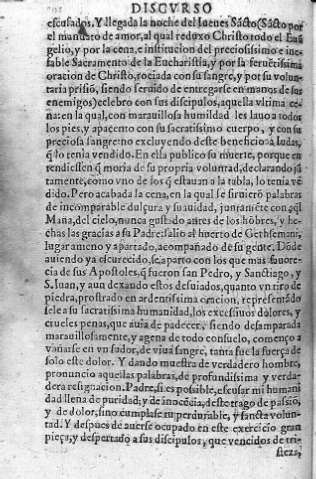 DISCVRSO
escusados. Y llegada la noche del Iueues Sãcto (Sãcto por
el mandato de amor, al qual reduxo Christo todo el Euã
gelio, y por la cena, e institucion del preciosissimo e ine
fable Sacramento de la Eucharistia, y por la feruẽtissima
oracion de Christo, rociada con su sangre, y por su volun
taria prisiõ, siendo seruido de entregarse en manos de sus
enemigos) celebro con sus discipulos, aquella vltima ce
na: en la qual, con marauillosa humildad les lauo a todos
los pies, y apacento con su sacratissimo cuerpo, y con su
preciosa sangre: no excluyendo deste beneficio a Iudas,
q̃ lo tenia vendido. En ella publico su muerte, porque en
tendiessen q̃ moria de su propria voluntad, declarando jũ
tamente, como vno de los q̃ estauan a la tabla, lo tenia vẽ
dido. Pero acabada la cena, en la qual se siruierõ palabras
de incomparable dulçura y suauidad, juntamẽte con aq̃l
Mana, del cielo, nunca gustado antes de los hõbres, y he
chas las gracias a su Padre: salio al huerto de Gethsemani,
lugar ameno y apartado, acompañado de su gente. Dõde
auiendo ya escurecido, se aparto con los que mas fauore
cia de sus Apostoles, q̃ fueron san Pedro, y Sanctiago, y
S. Iuan, y aun dexando estos desuiados, quanto vn tiro de
piedra, prostrado en ardentissima oracion, representãdo
sele a su sacratissima humanidad, los excessiuos dolores, y
crueles penas, que auia de padecer, siendo desamparada
marauillosamente, y agena de todo consuelo, começo a
vañarse en vn sudor, de viua sangre, tanta fue la fuerça de
solo este dolor. Y dando muestra de verdadero hombre,
pronuncio aquellas palabras, de profundissima y verda
dera resignacion. Padre, si es possible, escusar mi humani
dad llena de puridad, y de inocẽcia, deste trago de passiõ,
y de dolor, sino cumplase tu perdurable, y sancta volun
tad. Y despues de auerse ocupado en este exercicio gran
pieça, y despertado a sus discipulos, que vencidos de tris
steza,